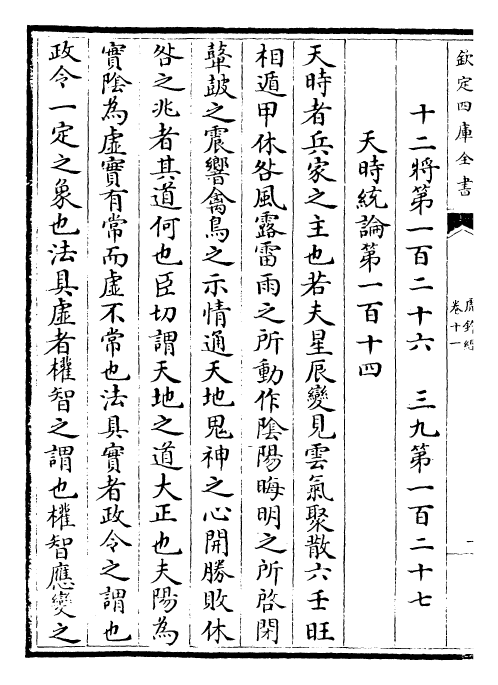 欽定四庫全書
虎鈐經
卷十一
十二將第一百二十六　三九第一百二十七
天時統論第一百十四
天時者兵家之主也若夫星辰變見雲氣聚散六壬旺
相遁甲休咎風露雷雨之所動作隂陽晦明之所啓閉
鼙鼓之震響禽鳥之示情通天地鬼神之心開勝敗休
咎之兆者其道何也臣切謂天地之道大正也夫陽為
實陰為虛實有常而虛不常也法具實者政令之謂也
政令一定之象也法具虛者權智之謂也權智應變之